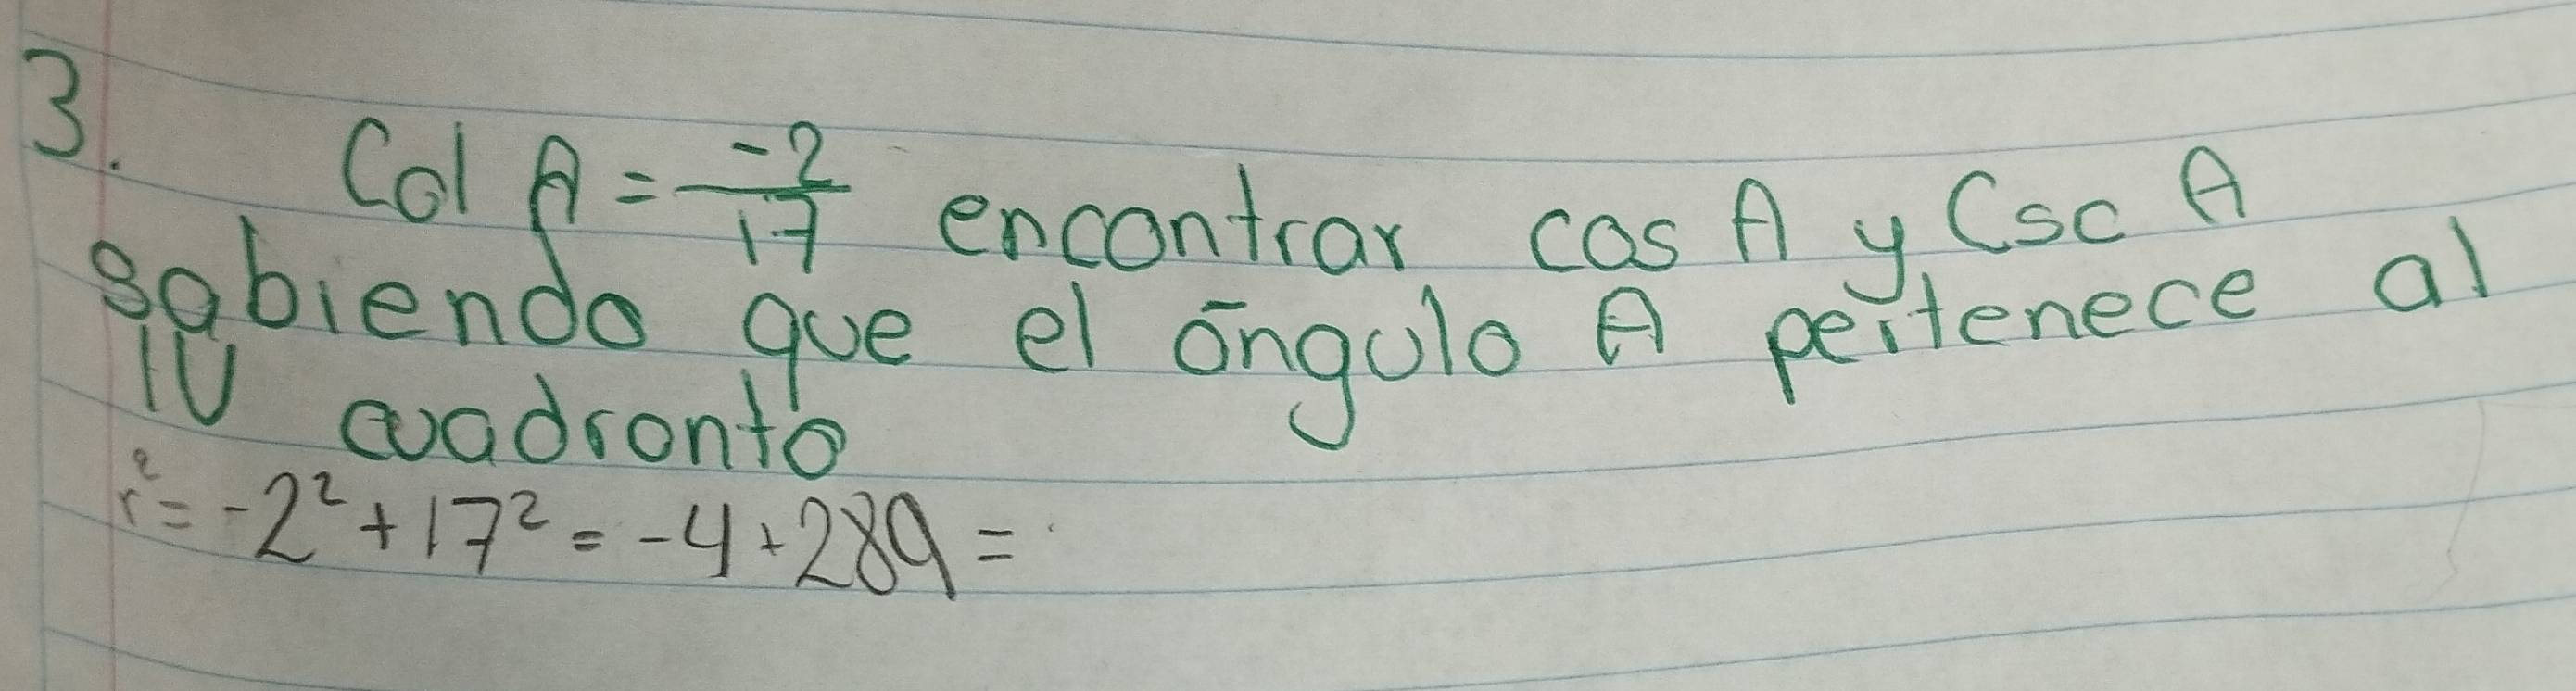 3.
Cot A = -2/17 encontrar cos A y Csc A
sabiendo que el ángulo A pertenece al
IV cuadrante
r² = -2² + 17² = -4 + 289 =